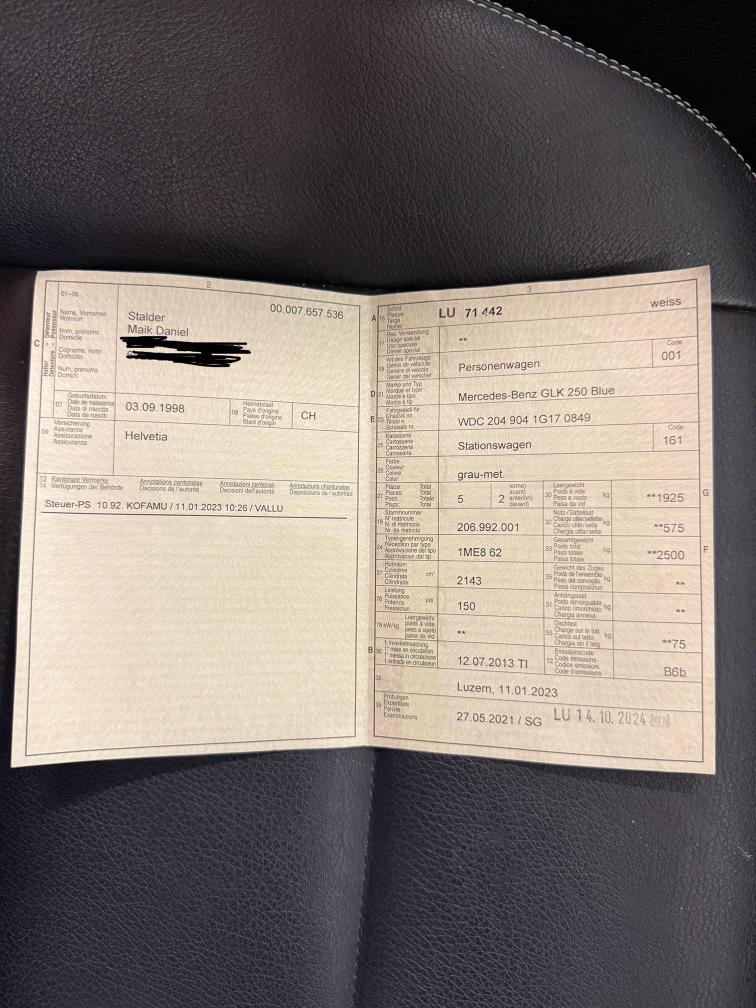 2
01-06
Name, Vornamen
Wohnort
Nom, prénoms
Domicile
Cognome, nomi
Domicilio
Num, prenums
Domicil
C
00.007.657.536
Stalder
Maik Daniel
07
Geburtsdatum
Date de naissance
Data di nascita
Data da nasch.
03.09.1998
08
Heimatstaat
Pays d'origine
Paese d'origine
Stadi d'origin
CH
09
Versicherung
Assurance
Assicurazione
Assicuranza
Helvetia
13 Kantonale Vermerke
14 Verfügungen der Behörde
Annotations cantonales
Décisions de l'autorité
Annotazioni cantonali
Decisioni dell'autorità
Annotaziuns chantunalas
Disposiziuns da l'autoritad
Steuer-PS 10.92. KOFAMU / 11.01.2023 10:26 / VALLU
3
A 15
Schild
Plaque
Targa
Numer
LU 71 442
weiss
Bes. Verwendung
Usage spécial
Uso speciale
Diever spezial
**
Art des Fahrzeugs
Genre de véhicule
Genere di veicolo
Gener dal vehichel
Personenwagen
Code
001
D 21
Marke und Typ
Marque et type
Marca e tipo
Marca e tip
Mercedes-Benz GLK 250 Blue
E 23
Fahrgestell-Nr.
Châssis no
Telaio n.
Schassis nr.
WDC 204 904 1G17 0849
25
Karosserie
Carrosserie
Carrozzeria
Carossaria
Stationswagen
Code
161
26
Farbe
Couleur
Colore
Colur
grau-met.
27
Plätze: Total
Places: Total
Posti: Totale
Plazs: Total
5
2
vorne)
avant)
anteriori)
davant)
30
Leergewicht
Poids à vide
Peso a vuoto
Paisa da vid
kg
**1925
G
18
Stammnummer
N° matricule
N. di matricola
Nr. da matricla
206.992.001
32
Nutz-/Sattellast
Charge utile/sellette
Carico utile/sella
Chargia utila/sella
kg
**575
24
Typengenehmigung
Réception par type
Approvazione del tipo
Approvaziun dal tip
1ME8 62
33
Gesamtgewicht
Poids total
Peso totale
Paisa totala
kg
**2500
F
37
Hubraum
Cylindrée
Cilindrata
Cilindrada
cm³
2143
35
Gewicht des Zuges
Poids de l'ensemble
Peso del convoglio
Paisa cumposiziun
kg
**
76
Leistung
Puissance
Potenza
Prestaziun
kW
150
31
Anhängelast
Poids remorquable
Carico rimorchiabile
Chargia annexa
kg
**
78 kW/kg
Leergewicht
poids à vide
peso a vuoto
paisa da vid
**
55
Dachlast
Charge sur le toit
Carico sul tetto
Chargia sin il tetg
kg
**75
B 36
1. Inverkehrsetzung
1re mise en circulation
1a messa in circolazione
1. entrada en circulaziun
12.07.2013 TI
72
Emissionscode
Code émissions
Codice emissioni
Code d'emissiuns
B6b
38
Luzern, 11.01.2023
39
Prüfungen
Expertises
Perizie
Examinaziuns
27.05.2021 / SG
LU 14.10.2024